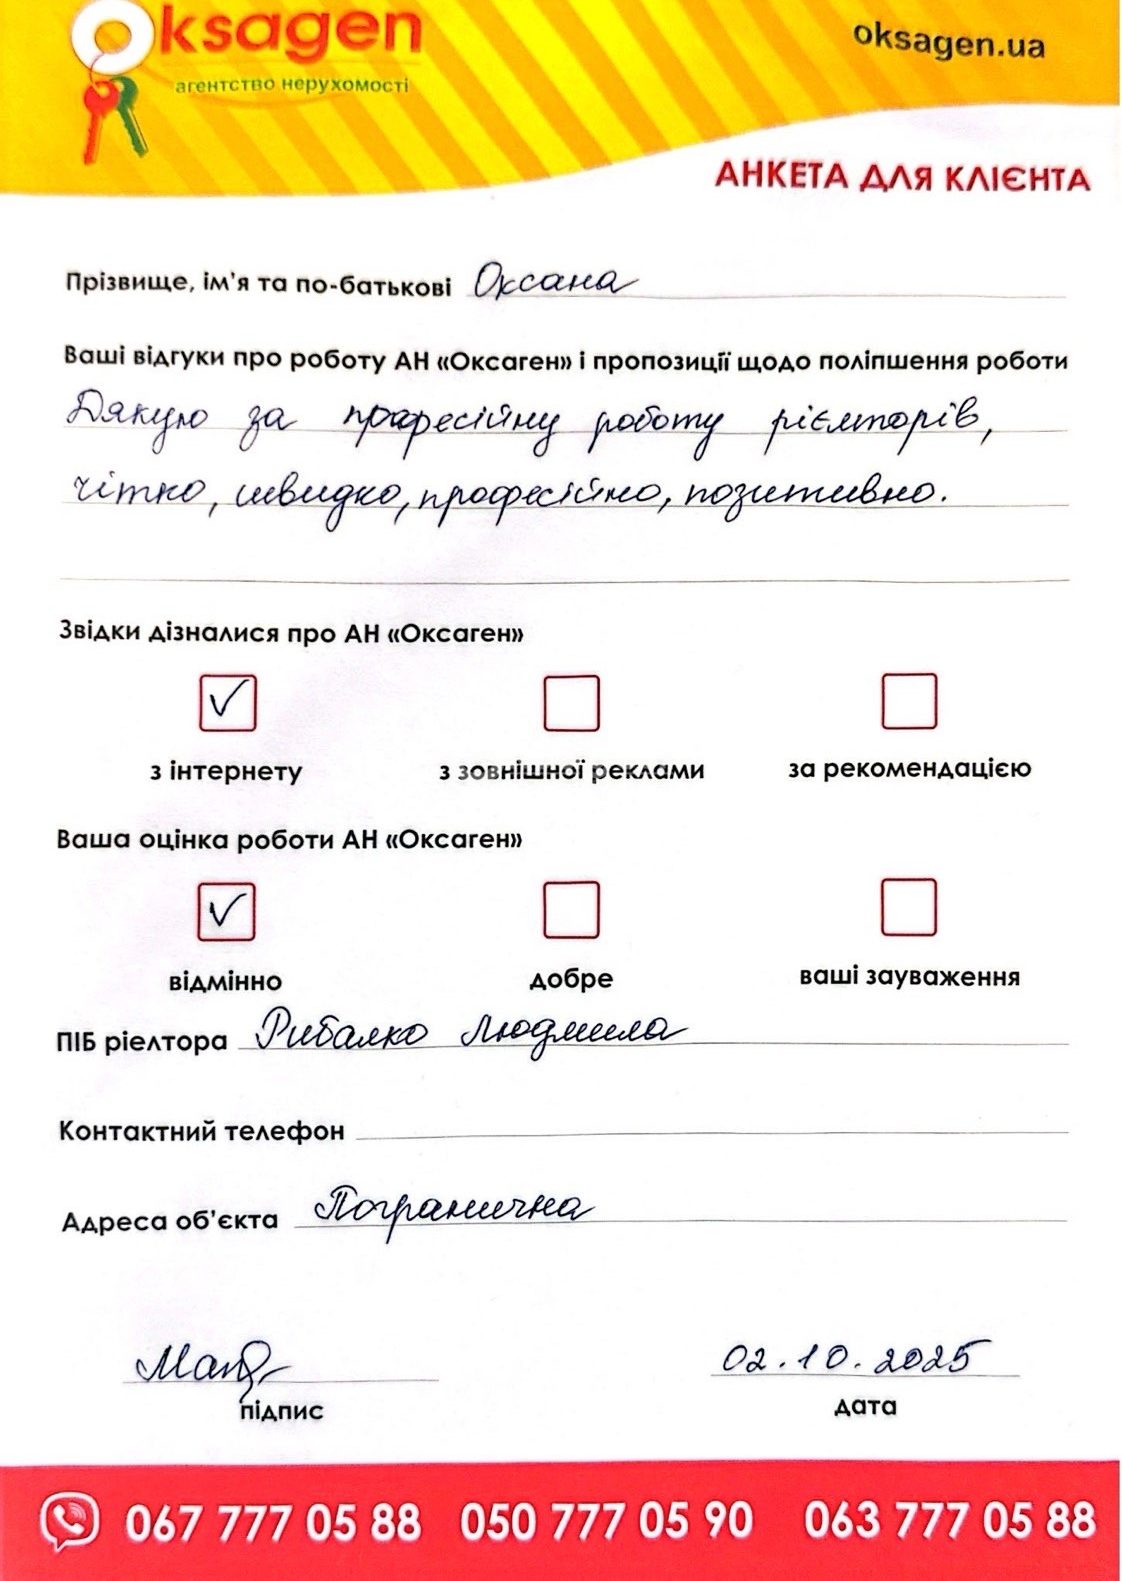 Oksagen
агентство нерухомості
oksagen.ua
АНКЕТА ДЛЯ КЛІЄНТА
Прізвище, ім'я та по-батькові Оксана
Ваші відгуки про роботу АН «Оксаген» і пропозиції щодо поліпшення роботи
Дякую за професійну роботу рієлторів,
чітко, швидко, професійно, позитивно.
Звідки дізналися про АН «Оксаген»
✓
з інтернету з зовнішної реклами за рекомендацією
Ваша оцінка роботи АН «Оксаген»
✓
відмінно добре ваші зауваження
ПІБ ріелтора Рибалко Людмила
Контактний телефон
Адреса об'єкта Погранична
02.10.2025
підпис дата
067 777 05 88 050 777 05 90 063 777 05 88